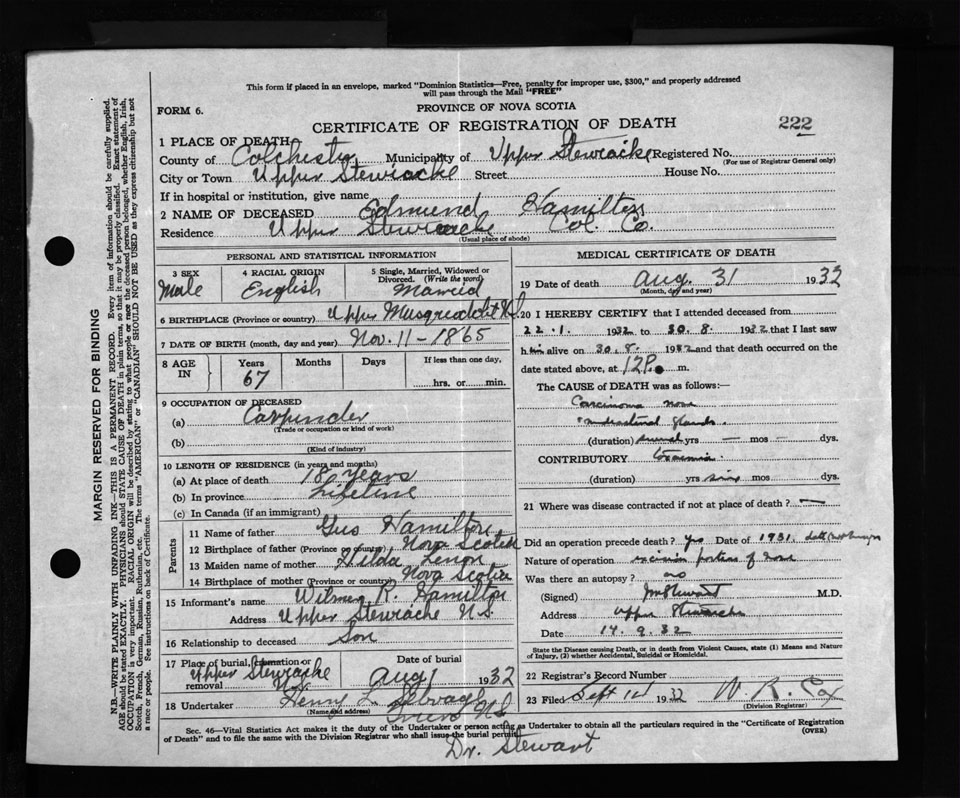 This form if placed in an envelope, marked "Dominion Statistics—Free, penalty for improper use, $300," and properly addressed
will pass through the Mail "FREE"
FORM 6.
PROVINCE OF NOVA SCOTIA
CERTIFICATE OF REGISTRATION OF DEATH
222
1 PLACE OF DEATH
County of Colchester Municipality of Upper Stewiacke Registered No.
(For use of Registrar General only)
City or Town Upper Stewiacke Street House No.
If in hospital or institution, give name
2 NAME OF DECEASED Edmund Hamilton
Residence Upper Stewiacke Col. Co.
(Usual place of abode)
PERSONAL AND STATISTICAL INFORMATION
3 SEX Male
4 RACIAL ORIGIN English
5 Single, Married, Widowed or Divorced. (Write the word) Married
6 BIRTHPLACE (Province or country) Upper Musquodobit N.S.
7 DATE OF BIRTH (month, day and year) Nov. 11 - 1865
8 AGE IN Years 67 Months Days If less than one day, hrs. or min.
9 OCCUPATION OF DECEASED
(a) Carpinder
(Trade or occupation or kind of work)
(b)
(Kind of industry)
10 LENGTH OF RESIDENCE (in years and months)
(a) At place of death 18 years
(b) In province Lifetime
(c) In Canada (if an immigrant)
Parents
11 Name of father Gus Hamilton
12 Birthplace of father (Province or country) Nova Scotia
13 Maiden name of mother Hilda
14 Birthplace of mother (Province or country) Nova Scotia
15 Informant's name Wilmer R. Hamilton
Address Upper Stewiacke N.S.
16 Relationship to deceased Son
17 Place of burial, cremation or removal Upper Stewiacke N.S.
Date of burial Aug 1 1932
18 Undertaker Henry L.
(Name and address) Truro N.S
MEDICAL CERTIFICATE OF DEATH
19 Date of death Aug. 31 1932
(Month, day and year)
20 I HEREBY CERTIFY that I attended deceased from
22.1. 1932 to 30.8. 1932 that I last saw
him alive on 30.8. 1932 and that death occurred on the
date stated above, at 12 P. m.
The CAUSE of DEATH was as follows:
Carcinoma nose
mediastinal glands.
(duration) several yrs — mos — dys.
CONTRIBUTORY
(duration) yrs mos dys.
21 Where was disease contracted if not at place of death? —
Did an operation precede death? yes Date of 1931.
Nature of operation excision portion of nose
Was there an autopsy? no
(Signed) Stewart M.D.
Address Upper Stewiacke
Date 14.9.32
State the Disease causing Death, or in death from Violent Causes, state (1) Means and Nature
of Injury, (2) whether Accidental, Suicidal or Homicidal.
22 Registrar's Record Number
23 Filed Sept 14 1932 W. R. Cox
(Division Registrar)
Sec. 46—Vital Statistics Act makes it the duty of the Undertaker or person acting as Undertaker to obtain all the particulars required in the "Certificate of Registration
of Death" and to file the same with the Division Registrar who shall issue the burial permit.
(OVER)
Dr. Stewart
MARGIN RESERVED FOR BINDING
N.B.—WRITE PLAINLY WITH UNFADING INK—THIS IS A PERMANENT RECORD. Every item of information should be carefully supplied.
AGE should be stated EXACTLY. PHYSICIANS should STATE CAUSE OF DEATH in plain terms, so that it may be properly classified. Exact statement of
OCCUPATION is very important. RACIAL ORIGIN will be described by stating to what people or race the deceased person belonged, whether English, Irish,
Scotch, French, German, Russian, Ruthenian, etc. The terms "AMERICAN" or "CANADIAN" SHOULD NOT BE USED as they express citizenship but not
a race or people. See instructions on back of Certificate.